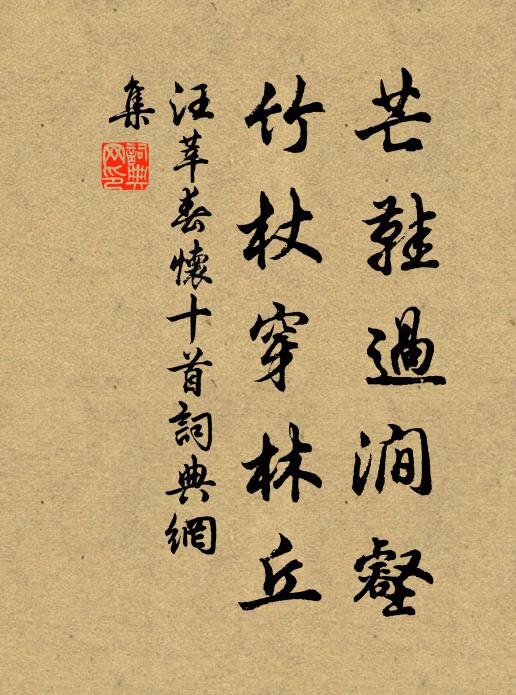 芒鞋過澗壑
竹杖穿林丘
汪莘春懷十首詞典網
集
詞典網印